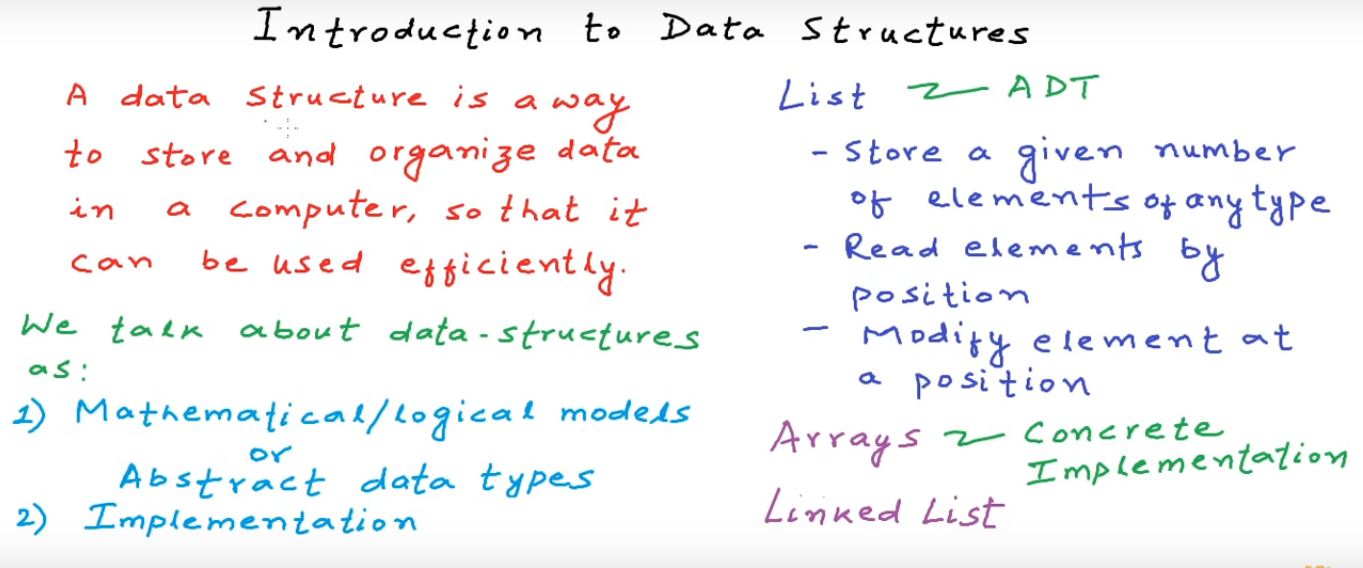 Introduction to Data Structures
A data structure is a way
to store and organize data
in a computer, so that it
can be used efficiently.
We talk about data-structures
as:
1) Mathematical/logical models
or
Abstract data types
2) Implementation
List ADT
- Store a given number
of elements of any type
- Read elements by
position
- Modify element at
a position
Arrays Concrete
Implementation
Linked List